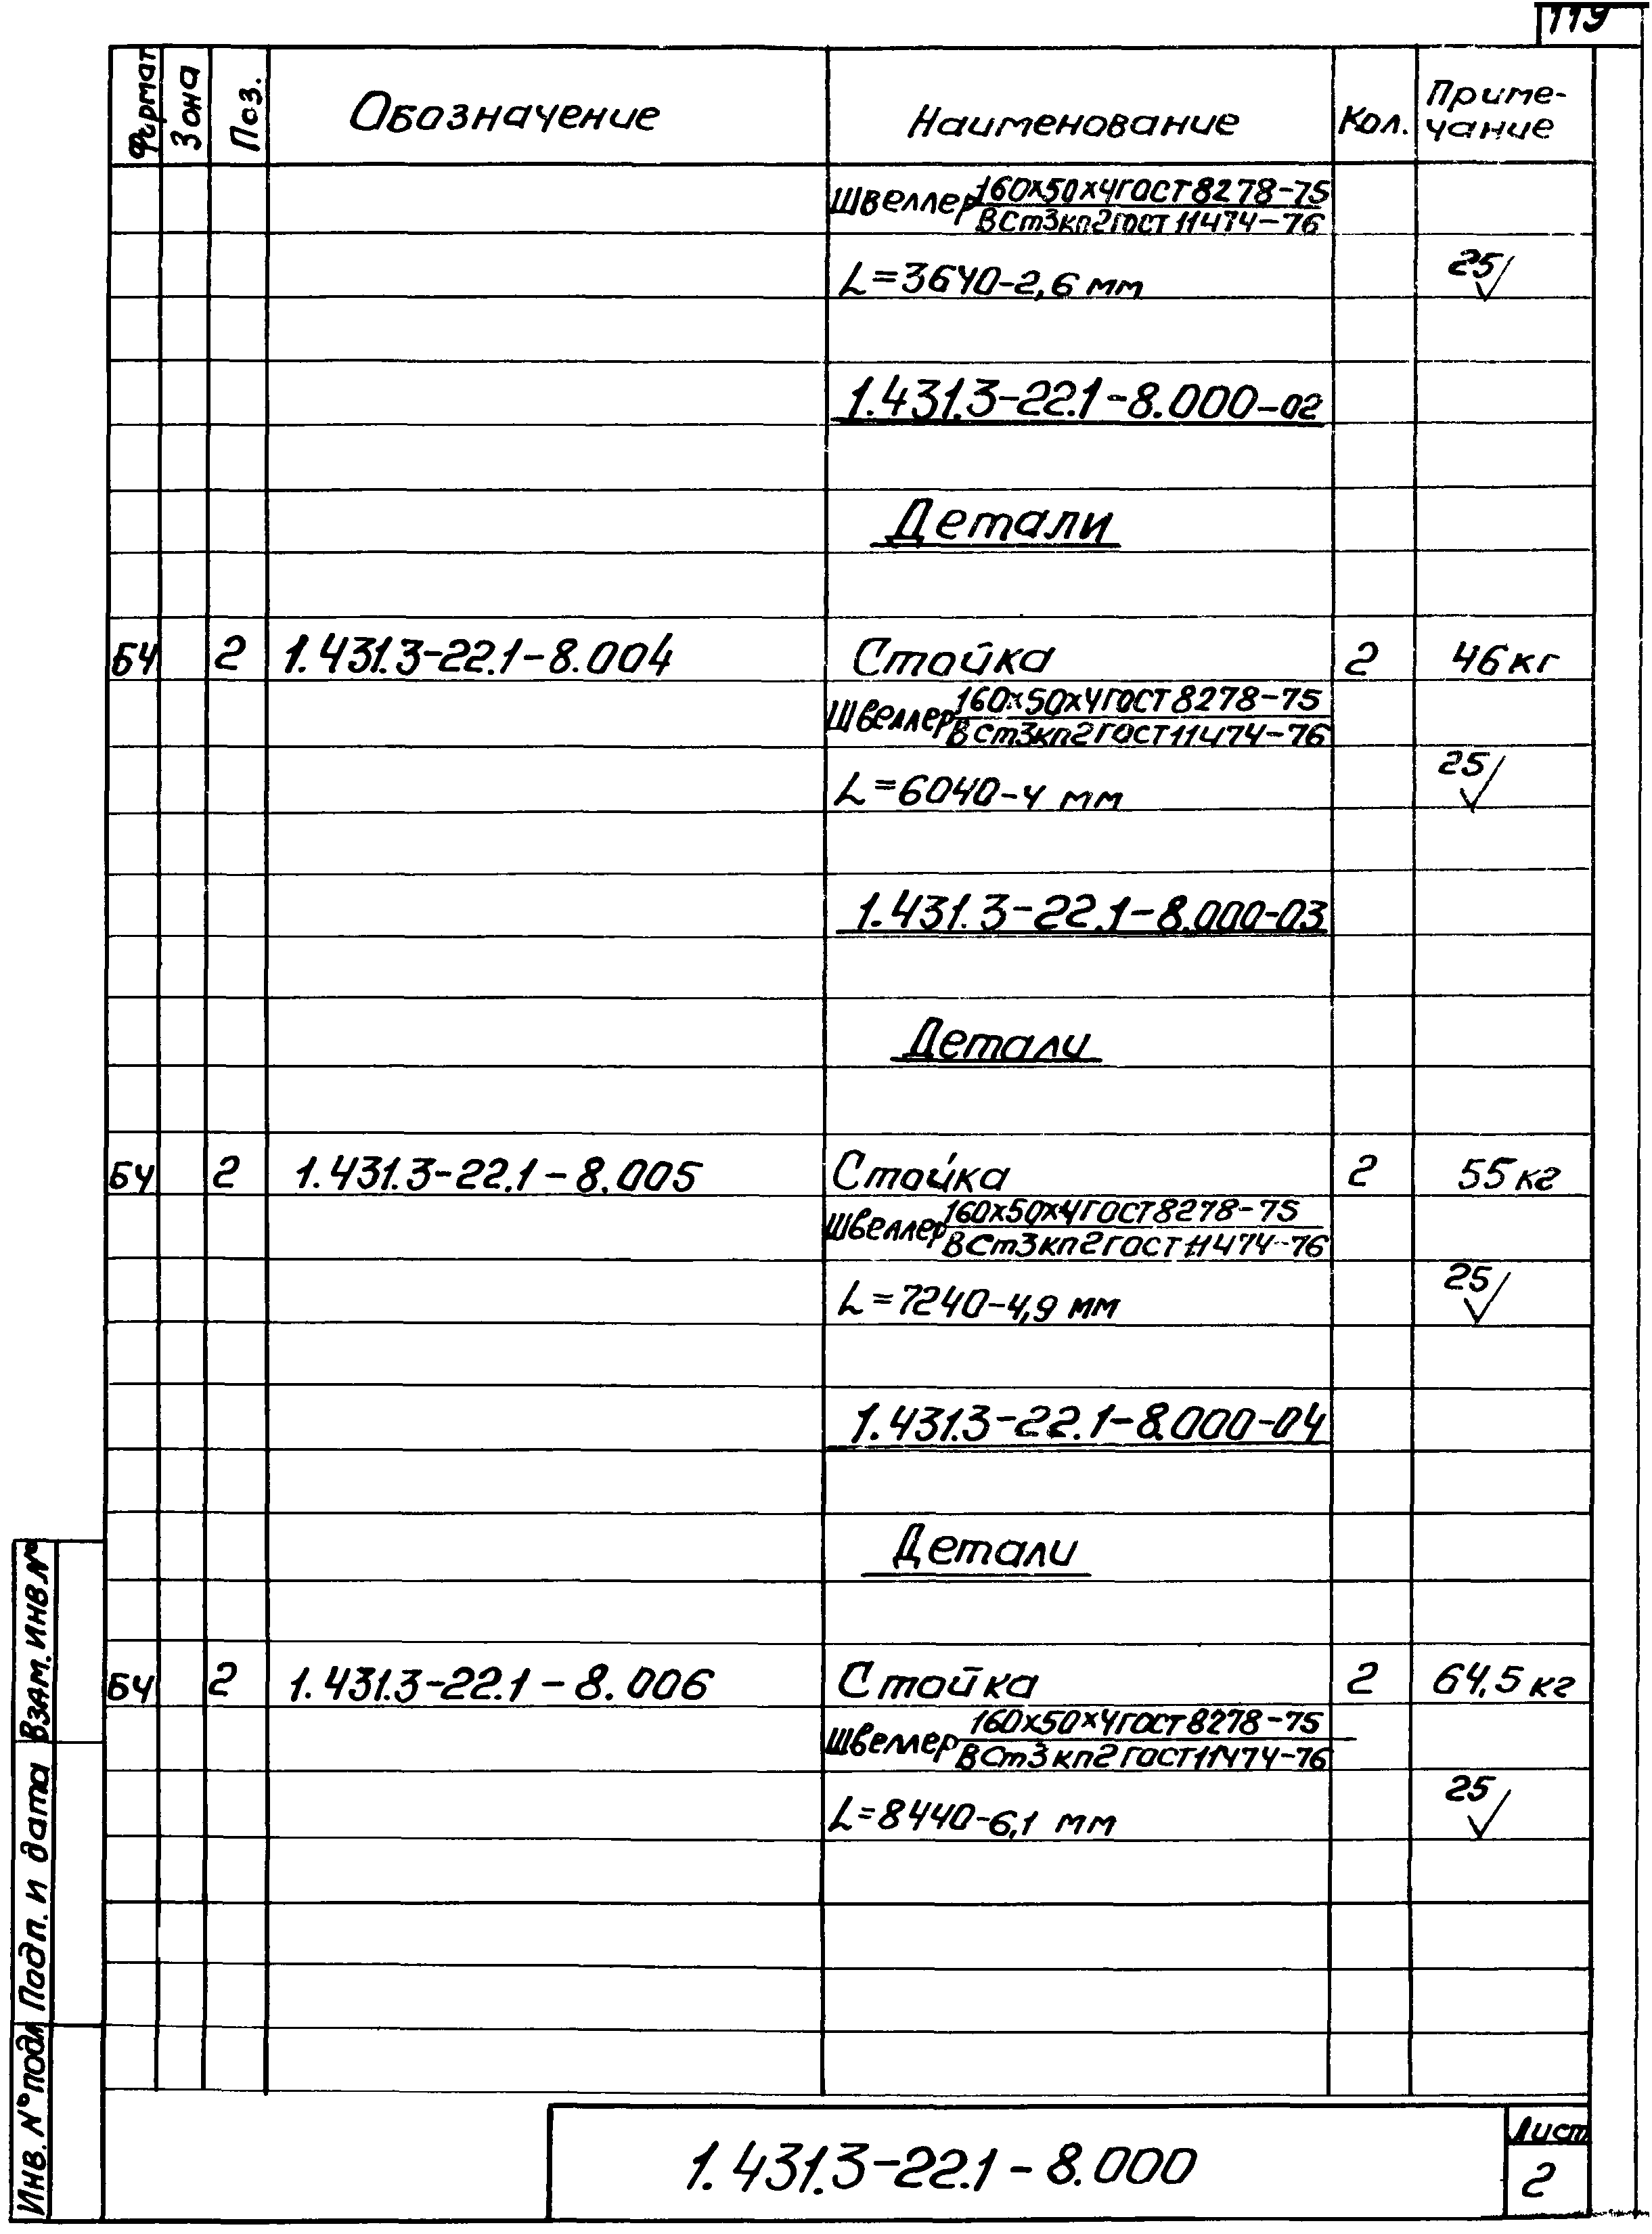 119
Формат Зона Поз. Обозначение Наименование Кол. Приме-
чание
Швеллер 160х50х4ГОСТ8278-75
ВСт3кп2ГОСТ11474-76
L=3640-2,6 мм 25
1.431.3-22.1-8.000-02
Детали
БЧ 2 1.431.3-22.1-8.004 Стойка 2 46кг
Швеллер 160х50х4ГОСТ8278-75
ВСт3кп2ГОСТ11474-76
L=6040-4 мм 25
1.431.3-22.1-8.000-03
Детали
БЧ 2 1.431.3-22.1-8.005 Стойка 2 55кг
Швеллер 160х50х4ГОСТ8278-75
ВСт3кп2ГОСТ11474-76
L=7240-4,9 мм 25
1.431.3-22.1-8.000-04
Детали
БЧ 2 1.431.3-22.1-8.006 Стойка 2 64,5кг
Швеллер 160х50х4ГОСТ8278-75
ВСт3кп2ГОСТ11474-76
L=8440-6,1 мм 25
Взам. инв №
Подп. и дата
Инв. № подл
1.431.3-22.1-8.000
Лист
2